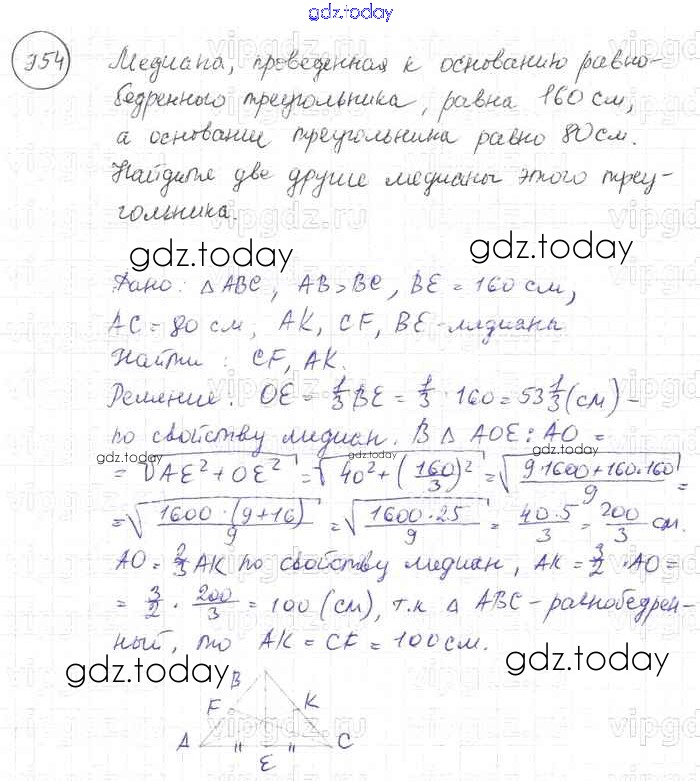 gdz.today
954 Медиана, проведенная к основанию равно-
бедренного треугольника, равна 160 см,
а основание треугольника равно 80 см.
Найдите две другие медианы этого треу-
гольника.
gdz.today gdz.today
Дано: △ABC, AB=BC, BE = 160 см,
AC = 80 см, AK, CF, BE-медианы
Найти : CF, AK.
Решение: OE = 1/3 BE = 1/3 · 160 = 53 1/3 (см) –
по свойству медиан. В △ AOE: AO =
= √(AE² + OE²) = √(40² + (160/3)²) = √((9·1600+160·160)/9) =
= √((1600·(9+16))/9) = √((1600·25)/9) = (40·5)/3 = 200/3 см.
AO = 2/3 AK по свойству медиан, AK = 3/2 · AO =
= 3/2 · 200/3 = 100 (см), т.к △ ABC – равнобедрен-
ный, то AK = CF = 100 см.
gdz.today gdz.today
B
F K
A C
E